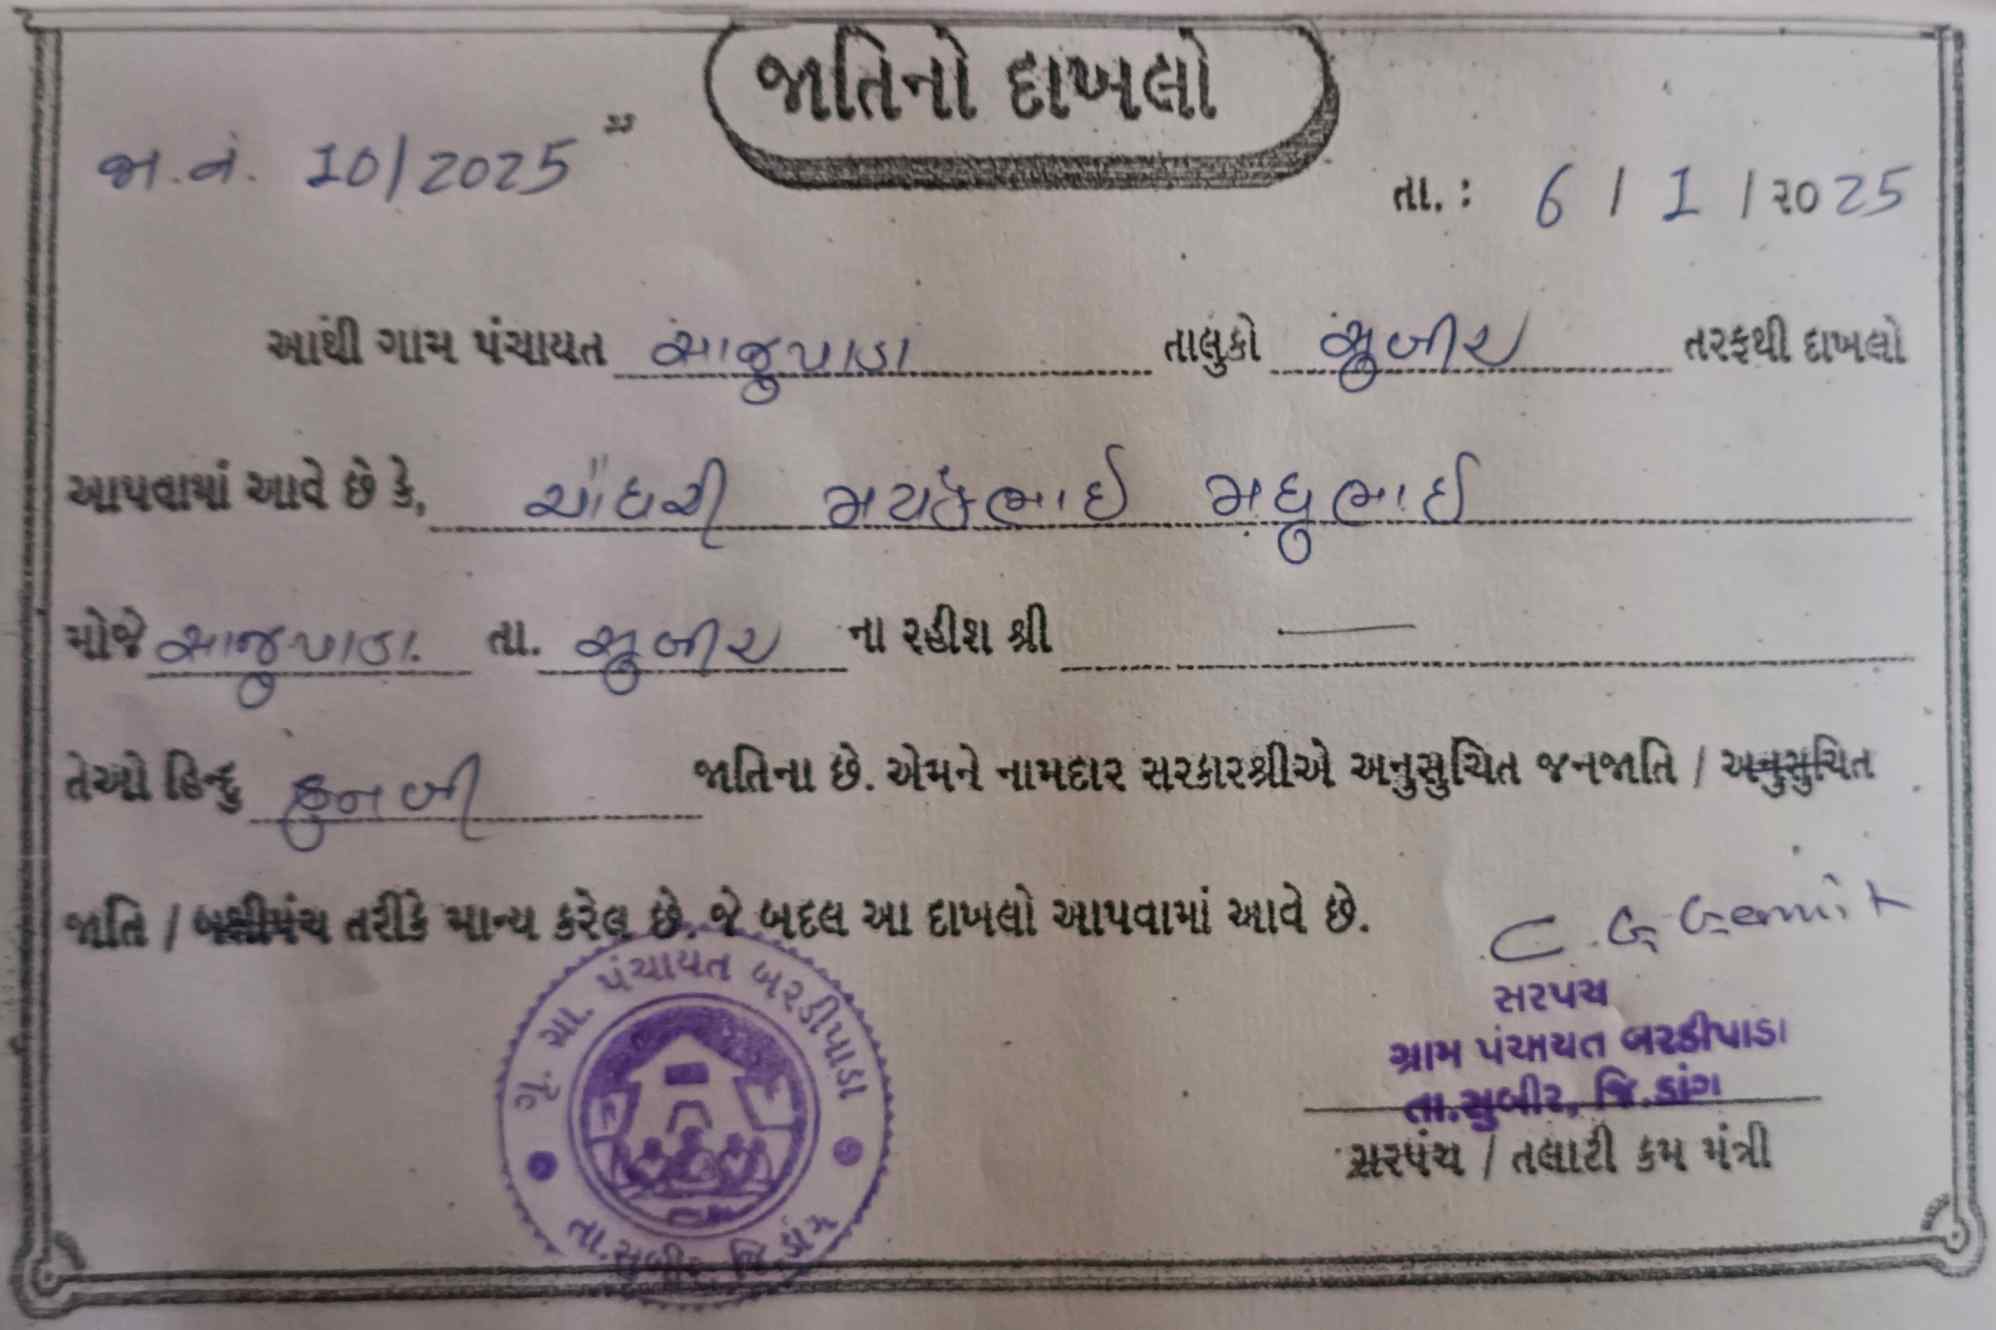 જાતિનો દાખલો
જા.નં. 10/2025
તા. : 6 / 1 / ૨૦25
આથી ગામ પંચાયત સાજુપાડા તાલુકો સુબીર તરફથી દાખલો
આપવામાં આવે છે કે, ચૌધરી મયંકભાઈ મધુભાઈ
મોજે સાજુપાડા તા. સુબીર ના રહીશ શ્રી —
તેઓ હિન્દુ કુનબી જાતિના છે. એમને નામદાર સરકારશ્રીએ અનુસુચિત જનજાતિ / અનુસુચિત
જાતિ / બક્ષીપંચ તરીકે માન્ય કરેલ છે. જે બદલ આ દાખલો આપવામાં આવે છે.
C. G. Gamit
સરપચ
ગ્રામ પંચાયત બરડીપાડા
તા.સુબીર, જિ.ડાંગ
સરપંચ / તલાટી કમ મંત્રી
ગૃ. ગ્રા. પંચાયત બરડીપાડા
તા.સુબીર, જિ.ડાંગ